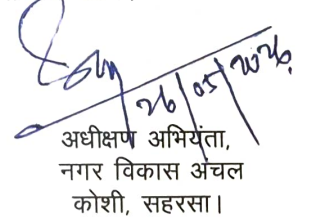 26/05/2025
अधीक्षण अभियंता,
नगर विकास अंचल
कोशी, सहरसा।